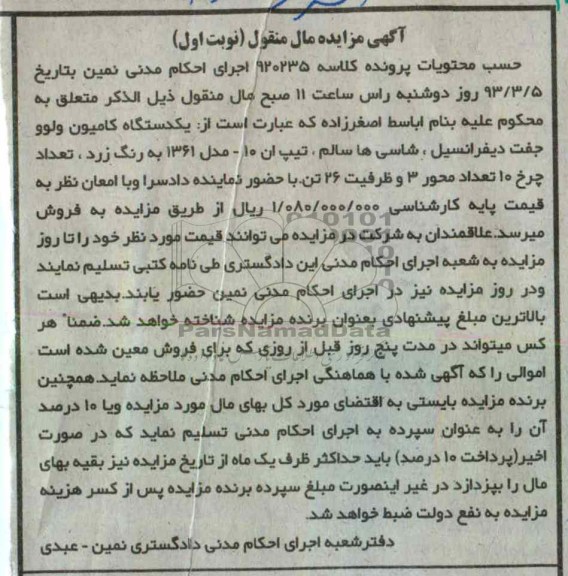 آگهی مزایده مال منقول (نوبت اول)
حسب محتویات پرونده کلاسه ۹۲۰۲۳۵ اجرای احکام مدنی نمین بتاریخ
۹۳/۳/۵ روز دوشنبه راس ساعت ۱۱ صبح مال منقول ذیل الذکر متعلق به
محکوم علیه بنام اباسط اصغرزاده که عبارت است از: یکدستگاه کامیون ولوو
جفت دیفرانسیل ، شاسی ها سالم ، تیپ ان ۱۰ - مدل ۱۳۶۱ به رنگ زرد ، تعداد
چرخ ۱۰ تعداد محور ۳ و ظرفیت ۲۶ تن.با حضور نماینده دادسرا وبا امعان نظر به
قیمت پایه کارشناسی ۱/۰۸۰/۰۰۰/۰۰۰ ریال از طریق مزایده به فروش
میرسد.علاقمندان به شرکت در مزایده می توانند قیمت مورد نظر خود را تا روز
مزایده به شعبه اجرای احکام مدنی این دادگستری طی نامه کتبی تسلیم نمایند
ودر روز مزایده نیز در اجرای احکام مدنی نمین حضور یابند.بدیهی است
بالاترین مبلغ پیشنهادی بعنوان برنده مزایده شناخته خواهد شد.ضمنا" هر
ParsNamadData
کس میتواند در مدت پنج روز قبل از روزی که برای فروش معین شده است
اموالی را که آگهی شده با هماهنگی اجرای احکام مدنی ملاحظه نماید.همچنین
برنده مزایده بایستی به اقتضای مورد کل بهای مال مورد مزایده ویا ۱۰ درصد
آن را به عنوان سپرده به اجرای احکام مدنی تسلیم نماید که در صورت
اخیر(پرداخت ۱۰ درصد) باید حداکثر ظرف یک ماه از تاریخ مزایده نیز بقیه بهای
مال را بپردازد در غیر اینصورت مبلغ سپرده برنده مزایده پس از کسر هزینه
مزایده به نفع دولت ضبط خواهد شد.
دفترشعبه اجرای احکام مدنی دادگستری نمین - عبدی